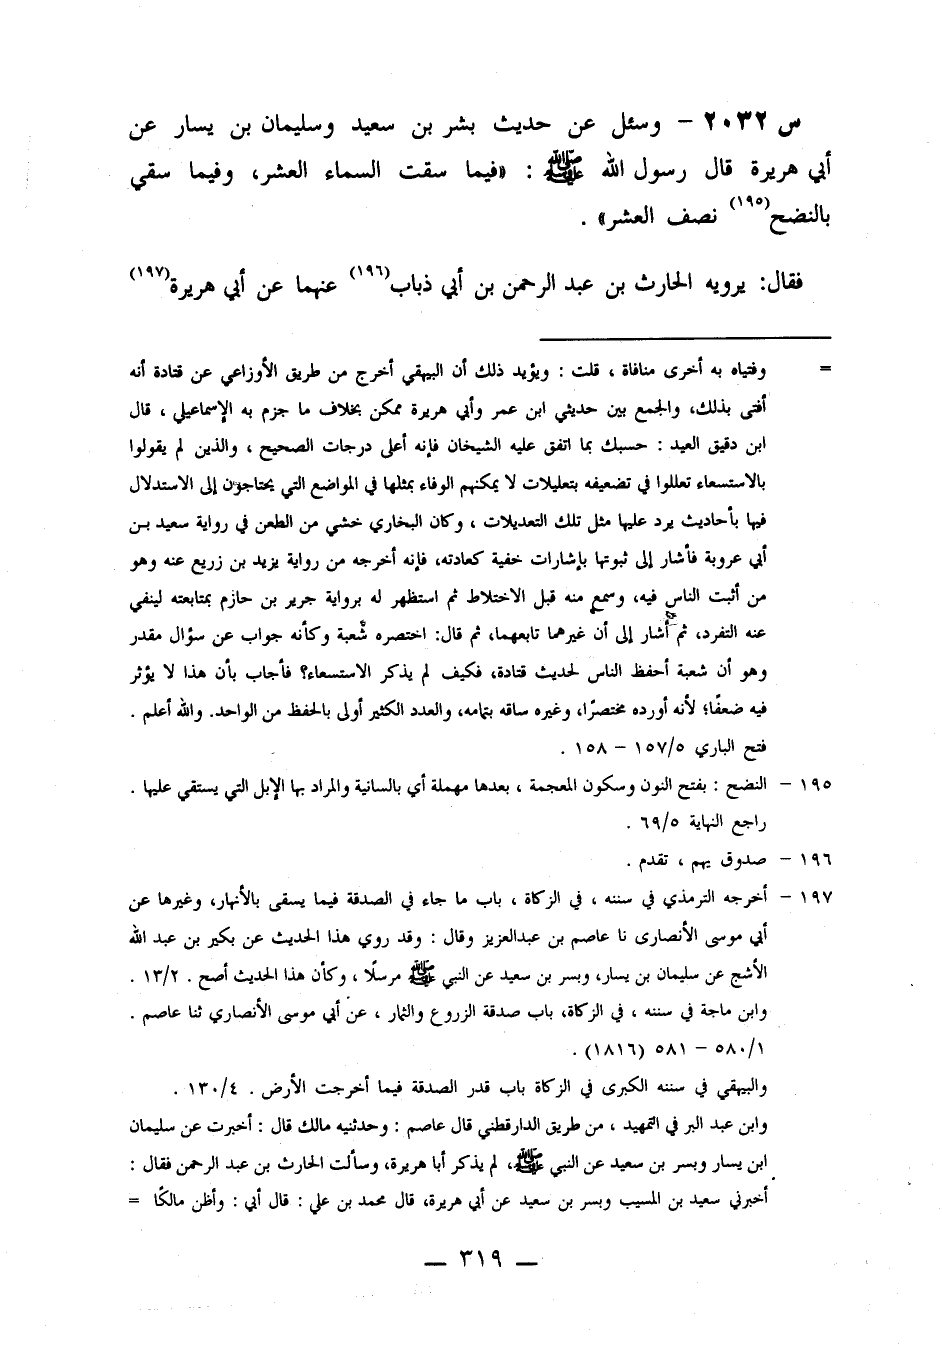 س ٢٠٣٢ – وسئل عن حديث بشر بن سعيد وسليمان بن يسار عن
أبي هريرة قال رسول الله ﷺ : «فيما سقت السماء العشر، وفيما سقي
بالنضح(١٩٥) نصف العشر» .
فقال: يرويه الحارث بن عبد الرحمن بن أبي ذباب(١٩٦) عنهما عن أبي هريرة(١٩٧)
= وفتياه به أخرى منافاة ، قلت : ويؤيد ذلك أن البيهقي أخرج من طريق الأوزاعي عن قتادة أنه
أفتى بذلك، والجمع بين حديثي ابن عمر وأبي هريرة ممكن بخلاف ما جزم به الإسماعيلي ، قال
ابن دقيق العيد : حسبك بما اتفق عليه الشيخان فإنه أعلى درجات الصحيح ، والذين لم يقولوا
بالاستسعاء تعللوا في تضعيفه بتعليلات لا يمكنهم الوفاء بمثلها في المواضع التي يحتاجون إلى الاستدلال
فيها بأحاديث يرد عليها مثل تلك التعديلات ، وكان البخاري خشي من الطعن في رواية سعيد بن
أبي عروبة فأشار إلى ثبوتها بإشارات خفية كعادته، فإنه أخرجه من رواية يزيد بن زريع عنه وهو
من أثبت الناس فيه، وسمع منه قبل الاختلاط ثم استظهر له برواية جرير بن حازم بمتابعته لينفي
عنه التفرد، ثم أشار إلى أن غيرهما تابعهما، ثم قال: اختصره شعبة وكأنه جواب عن سؤال مقدر
وهو أن شعبة أحفظ الناس لحديث قتادة، فكيف لم يذكر الاستسعاء؟ فأجاب بأن هذا لا يؤثر
فيه ضعفًا؛ لأنه أورده مختصرًا، وغيره ساقه بتمامه، والعدد الكثير أولى بالحفظ من الواحد. والله أعلم .
فتح الباري ١٥٧/٥ – ١٥٨ .
١٩٥ – النضح : بفتح النون وسكون المعجمة ، بعدها مهملة أي بالسانية والمراد بها الإبل التي يستقي عليها .
راجع النهاية ٦٩/٥ .
١٩٦ – صدوق يهم ، تقدم .
١٩٧ – أخرجه الترمذي في سننه ، في الزكاة ، باب ما جاء في الصدقة فيما يسقى بالأنهار، وغيرها عن
أبي موسى الأنصارى نا عاصم بن عبدالعزيز وقال : وقد روي هذا الحديث عن بكير بن عبد الله
الأشج عن سليمان بن يسار، وبسر بن سعيد عن النبي ﷺ مرسلًا ، وكأن هذا الحديث أصح . ١٣/٢ .
وابن ماجة في سننه ، في الزكاة، باب صدقة الزروع والثمار ، عن أبي موسى الأنصاري ثنا عاصم .
٥٨٠/١ – ٥٨١ (١٨١٦) .
والبيهقي في سننه الكبرى في الزكاة باب قدر الصدقة فيما أخرجت الأرض . ١٣٠/٤ .
وابن عبد البر في التمهيد ، من طريق الدارقطني قال عاصم : وحدثنيه مالك قال : أخبرت عن سليمان
ابن يسار وبسر بن سعيد عن النبي ﷺ، لم يذكر أبا هريرة، وسألت الحارث بن عبد الرحمن فقال :
أخبرني سعيد بن المسيب وبسر بن سعيد عن أبي هريرة، قال محمد بن علي : قال أبي : وأظن مالكًا =
— ٣١٩ —